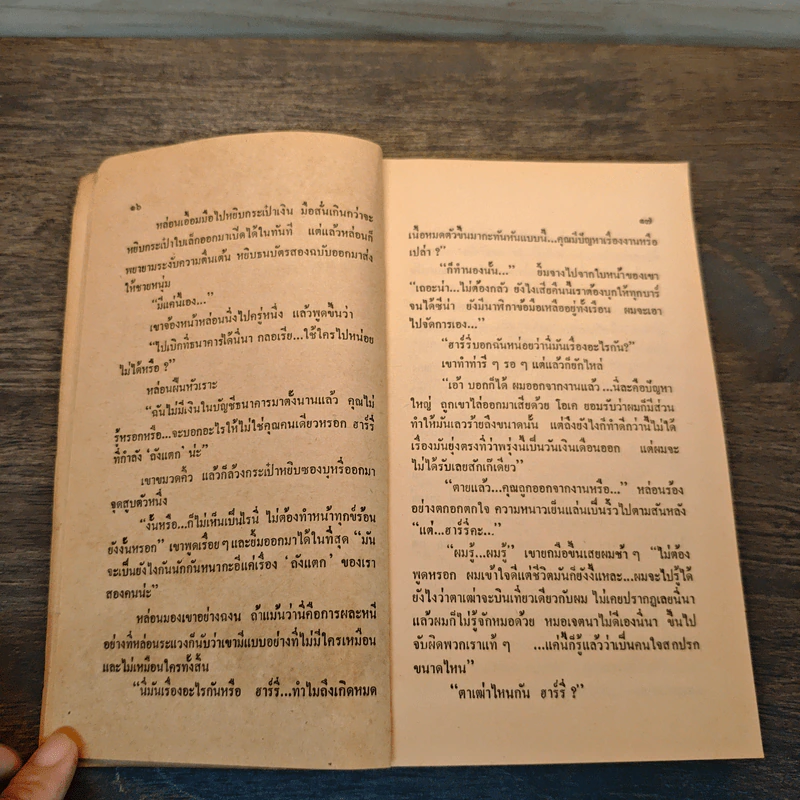 ๑๖
หล่อนเอื้อมมือไปหยิบกระเป๋าเงิน มือสั่นเกินกว่าจะ
หยิบกระเป๋าใบเล็กออกมาเปิดได้ในทันที แต่แล้วหล่อนก็
พยายามระงับความตื่นเต้น หยิบธนบัตรสองฉบับออกมาส่ง
ให้ชายหนุ่ม
“มีแค่นี้เอง...”
เขาจ้องหน้าหล่อนนิ่งไปครู่หนึ่ง แล้วพูดขึ้นว่า
“ไปเบิกที่ธนาคารได้นี่นา กลอเรีย...ใช้ใครไปหน่อย
ไม่ได้หรือ ?”
หล่อนฝืนหัวเราะ
“ฉันไม่มีเงินในบัญชีธนาคารมาตั้งนานแล้ว คุณไม่
รู้หรอกหรือ...จะบอกอะไรให้ไม่ใช่คุณคนเดียวหรอก ฮาร์รี่
ที่กำลัง ‘ถังแตก’ น่ะ”
เขาขมวดคิ้ว แล้วก็ล้วงกระเป๋าหยิบซองบุหรี่ออกมา
จุดสูบตัวหนึ่ง
“งั้นหรือ...ก็ไม่เห็นเป็นไรนี่ ไม่ต้องทำหน้าทุกข์ร้อน
ยังงั้นหรอก” เขาพูดเรื่อยๆ และยิ้มออกมาได้ในที่สุด “มัน
จะเป็นยังไงกันนักกันหนากะอีแค่เรื่อง ‘ถังแตก’ ของเรา
สองคนน่ะ”
หล่อนมองเขาอย่างฉงน ถ้าแม้นว่านี่คือการผละหนี
อย่างที่หล่อนระแวงก็นับว่าเขามีแบบอย่างที่ไม่มีใครเหมือน
และไม่เหมือนใครทั้งสิ้น
“นี่มันเรื่องอะไรกันหรือ ฮาร์รี่...ทำไมถึงเกิดหมด
๑๗
เนื้อหมดตัวขึ้นมากะทันหันแบบนี้...คุณมีปัญหาเรื่องงานหรือ
เปล่า ?”
“ก็ทำนองนั้น...” ยิ้มจางไปจากใบหน้าของเขา
“เถอะน่า...ไม่ต้องกลัว ยังไงเสียคืนนี้เราต้องบุกให้ทุกบาร์
จนได้ซีน่า ยังมีนาฬิกาข้อมือเหลืออยู่ทั้งเรือน ผมจะเอา
ไปจัดการเอง...”
“ฮาร์รี่บอกฉันหน่อยว่านี่มันเรื่องอะไรกัน?”
เขาทำท่ารี ๆ รอ ๆ แต่แล้วก็ยักไหล่
“เอ้า บอกก็ได้ ผมออกจากงานแล้ว...นี่ละคือปัญหา
ใหญ่ ถูกเขาไล่ออกมาเสียด้วย โอเค ยอมรับว่าผมก็มีส่วน
ทำให้มันแล้วร้ายถึงขนาดนั้น แต่ถึงยังไงก็ทำดีกว่านี้ไม่ได้
เรื่องมันยุ่งตรงที่ว่าพรุ่งนี้เป็นวันเงินเดือนออก แต่ผมจะ
ไม่ได้รับเลยสักเก๊เดียว”
“ตายแล้ว...คุณถูกออกจากงานหรือ...” หล่อนร้อง
อย่างตกอกตกใจ ความหนาวเย็นแล่นเป็นริ้วไปตามสันหลัง
“แต่...ฮาร์รี่คะ...”
“ผมรู้...ผมรู้” เขายกมือขึ้นเสยผมช้า ๆ “ไม่ต้อง
พูดหรอก ผมเข้าใจดีแต่ชีวิตมันก็ยังงี้แหละ...ผมจะไปรู้ได้
ยังไงว่าตาเฒ่าจะบินเที่ยวเดียวกับผม ไม่เคยปรากฏเลยนี่นา
แล้วผมก็ไม่รู้จักหมอด้วย หมอเจตนาไม่ดีเองนี่นา ขึ้นไป
จับผิดพวกเราแท้ ๆ ...แค่นี้ก็รู้แล้วว่าเป็นคนใจสกปรก
ขนาดไหน”
“ตาเฒ่าไหนกัน ฮาร์รี่ ?”